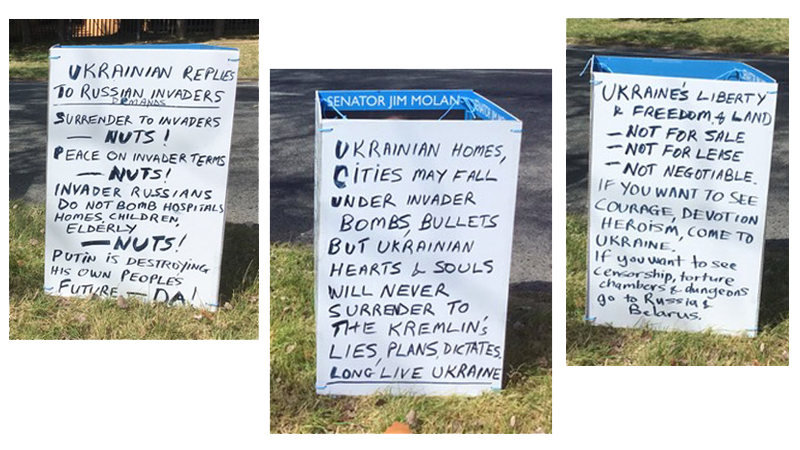 UKRAINIAN REPLIES
TO RUSSIAN INVADERS
DEMANDS
SURRENDER TO INVADERS
— NUTS!
PEACE ON INVADER TERMS
— NUTS!
INVADER RUSSIANS
DO NOT BOMB HOSPITALS
HOMES, CHILDREN,
ELDERLY
— NUTS!
PUTIN IS DESTROYING
HIS OWN PEOPLES
FUTURE — DA!
SENATOR JIM MOLAN
UKRAINIAN HOMES,
CITIES MAY FALL
UNDER INVADER
BOMBS, BULLETS
BUT UKRAINIAN
HEARTS & SOULS
WILL NEVER
SURRENDER TO
THE KREMLIN'S
LIES, PLANS, DICTATES.
LONG LIVE UKRAINE
UKRAINE'S LIBERTY
& FREEDOM, & LAND
— NOT FOR SALE
— NOT FOR LEASE
— NOT NEGOTIABLE.
IF YOU WANT TO SEE
COURAGE, DEVOTION
HEROISM, COME TO
UKRAINE.
If you want to see
censorship, torture
chambers & dungeons
go to Russia &
Belarus.